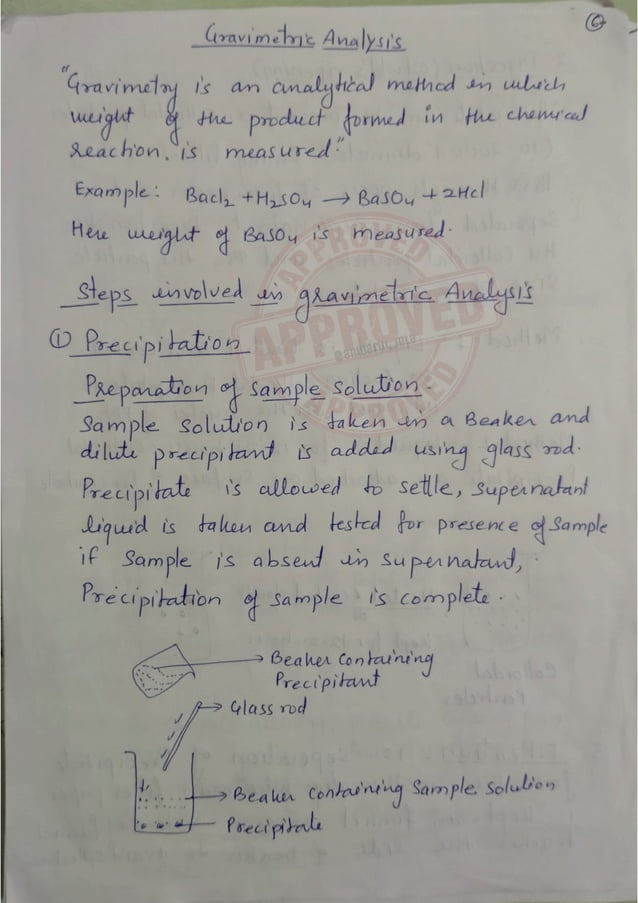 6
Gravimetric Analysis
"Gravimetry is an analytical method in which
weight of the product formed in the chemical
reaction. is measured"
Example: Bacl2 + H2SO4 → BaSO4 + 2Hcl
Here weight of BaSO4 is measured.
Steps involved in gravimetric Analysis
① Precipitation
Preparation of sample solution.
Sample solution is taken in a Beaker and
dilute precipitant is added using glass rod.
Precipitate is allowed to settle, supernatant
liquid is taken and tested for presence of sample
if sample is absent in supernatant,
Precipitation of sample is complete.
→ Beaker Containing
Precipitant
→ Glass rod
→ Beaker Containing Sample solution
Precipitate
APPROVED
APPROVED
APPROVED